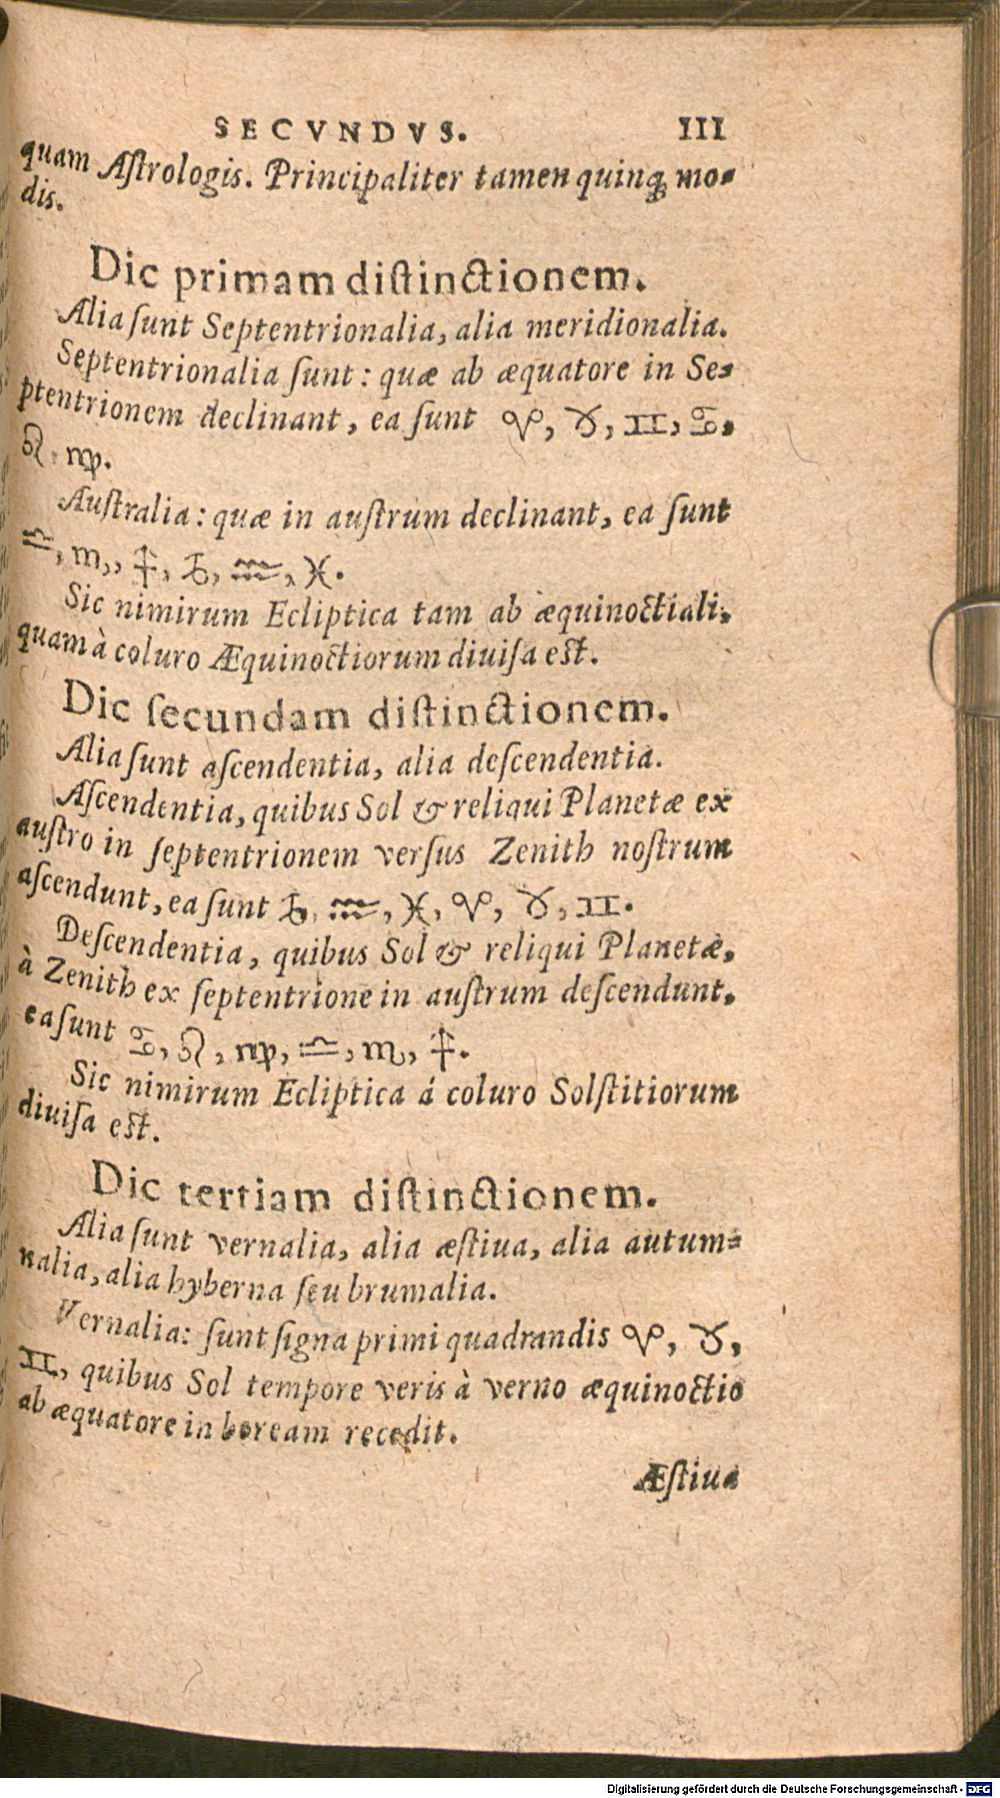 SECVNDVS. 111
quam Aſtrologis. Principaliter tamen quinq; mo-
dis.
Dic primam diſtinctionem.
Alia ſunt Septentrionalia, alia meridionalia.
Septentrionalia ſunt: quæ ab æquatore in Se-
ptentrionem declinant, ea ſunt ♈, ♉, ♊, ♋,
♌, ♍.
Auſtralia: quæ in auſtrum declinant, ea ſunt
♎, ♏, ♐, ♑, ♒, ♓.
Sic nimirum Ecliptica tam ab æquinoctiali,
quam à coluro Æquinoctiorum diuiſa eſt.
Dic ſecundam diſtinctionem.
Alia ſunt aſcendentia, alia deſcendentia.
Aſcendentia, quibus Sol & reliqui Planetæ ex
auſtro in ſeptentrionem verſus Zenith noſtrum
aſcendunt, ea ſunt ♑, ♒, ♓, ♈, ♉, ♊.
Deſcendentia, quibus Sol & reliqui Planetæ,
à Zenith ex ſeptentrione in auſtrum deſcendunt,
ea ſunt ♋, ♌, ♍, ♎, ♏, ♐.
Sic nimirum Ecliptica á coluro Solſtitiorum
diuiſa eſt.
Dic tertiam diſtinctionem.
Alia ſunt vernalia, alia æſtiua, alia autum-
nalia, alia hyberna ſeu brumalia.
Vernalia: ſunt ſigna primi quadrandis ♈, ♉,
♊, quibus Sol tempore veris à verno æquinoctio
ab æquatore in boream recedit.
Æſtiua
Digitalisierung gefördert durch die Deutsche Forschungsgemeinschaft - DFG